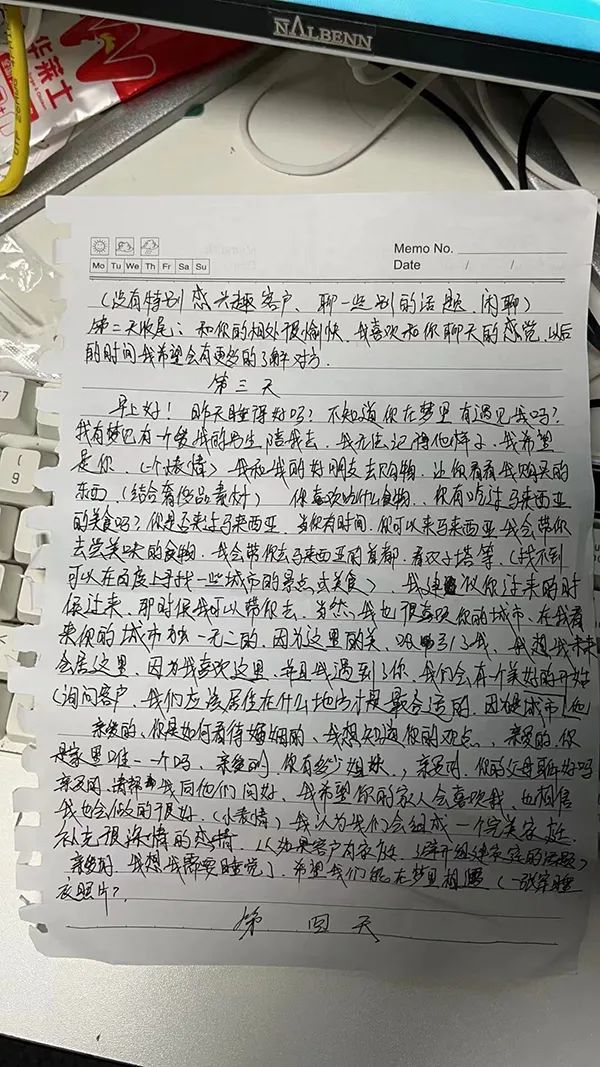 NALBENN
华莱士
Memo No.
Mo Tu We Th Fr Sa Su
Date / /
(没有特别感兴趣客户、聊一些别的话题、闲聊)
第二天收尾：和你的相处很愉快、我喜欢和你聊天的感觉、以后
的时间我希望会有更多的了解对方.
第三天
早上好！昨天睡得好吗？不知道你在梦里有遇见我吗？
我有梦见有一个 我的男生陪我去、我无法记得他样子、我希望
是你、(一个表情) 我和我的好朋友去购物、让你看看我购买的
东西 (结合奢侈品素材) 你喜欢吃什么食物、你有吃过马来西亚
的美食吗？你是否来过马来西亚、当你有时间、你可以来马来西亚我会带你
去尝美味的食物、我会带你去马来西亚的首都、看双子塔等、(找不到
可以在百度上寻找一些城市的景点或美食)、我建议你过来的时
候过来、那时候我可以带你去、当然、我也很喜欢你的城市、在我看
来你的城市独一无二的、因为这里的美、吸引了我、我想我未来
会居这里、因为我喜欢这里、并且我遇到了你、我们会有一个美好的开始
(询问客户、我们应该居住在什么地方才是最合适的、因为是城市
亲爱的、你是如何看待婚姻的、我想知道你的观点、亲爱的、你
是家里唯一一个吗、亲爱的、你有多少姐妹、亲爱的、你的父母
亲爱的、请帮我同他们问好、我希望你的家人会喜欢我、也相信
我也会做的很好、(小表情) 我认为我们会组成一个完美家庭
补充很深情的感情、 如果客户有家庭、避开组建家庭的话题)
亲爱的、我想我需要睡觉了、希望我们能在梦里相遇 (一张穿睡
衣照片?
第四天